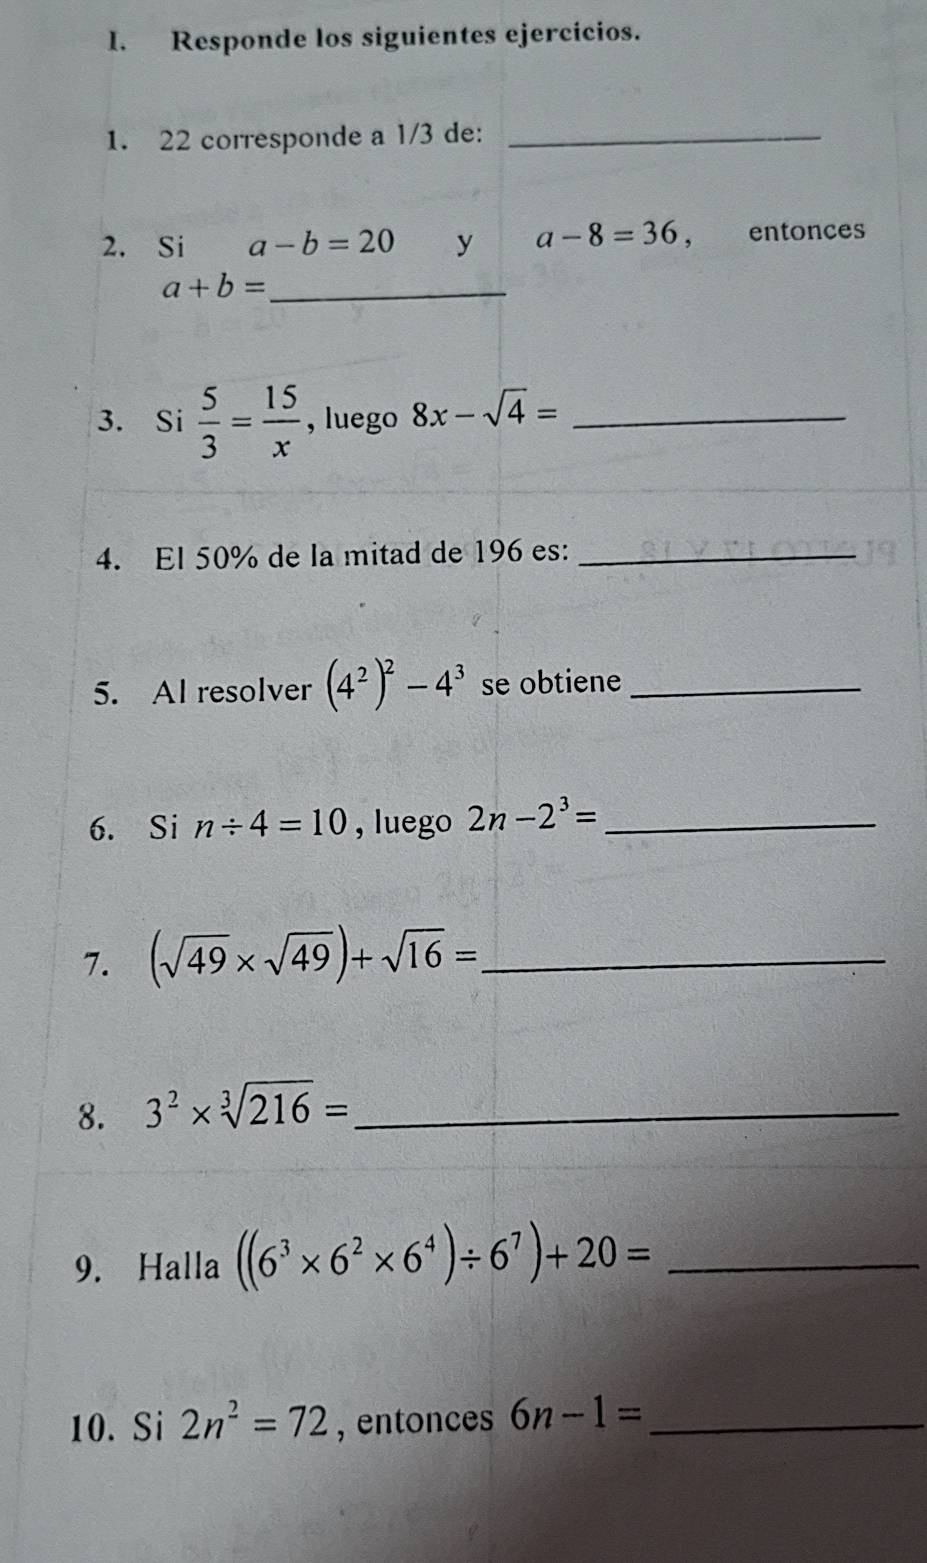 I. Responde los siguientes ejercicios.
1. 22 corresponde a 1/3 de: ____________
2. Si a − b = 20 y a − 8 = 36 , entonces
a + b = ____________
3. Si 5/3 = 15/x , luego 8x − √4 = ____________
4. El 50% de la mitad de 196 es: ____________
5. Al resolver (4²)² − 4³ se obtiene ____________
6. Si n ÷ 4 = 10 , luego 2n − 2³ = ____________
7. (√49 × √49) + √16 = ____________
8. 3² × ∛216 = ____________
9. Halla ((6³ × 6² × 6⁴) ÷ 6⁷) + 20 = ____________
10. Si 2n² = 72 , entonces 6n − 1 = ____________